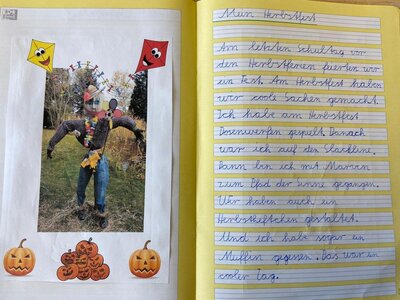 Mein Herbstfest
Am letzten Schultag vor
den Herbstferien feierten wir
ein Fest. Am Herbstfest haben
wir coole Sachen gemacht.
Ich habe am Herbstfest
Dosenwerfen gespielt. Danach
war ich auf den Slackline.
Dann bin ich mit Marven
zum Pfad der Sinne gegangen.
Wir haben auch ein
Herbstheftchen gestaltet.
Und ich habe sogar ein
Muffin gegessen. Das war ein
cooler Tag.